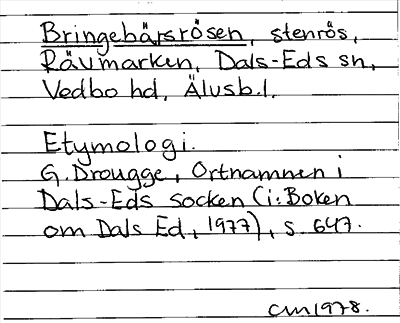 Bringebärsrösen, stenrös,
Rävmarken, Dals-Eds sn,
Vedbo hd, Älvsb.l.
Etymologi.
G. Drougge, Ortnamnen i
Dals-Eds socken (i: Boken
om Dals Ed, 1977), s. 647.
CM 1978.